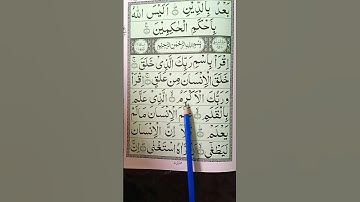 بَعْدُ بِالدِّيْنِ ۞ اَلَيْسَ اللّٰهُ
بِاَحْكَمِ الْحٰكِمِيْنَ ۞
بِسْمِ اللّٰهِ الرَّحْمٰنِ الرَّحِيْمِ
اِقْرَاْ بِاسْمِ رَبِّكَ الَّذِيْ خَلَقَ ۞
خَلَقَ الْاِنْسَانَ مِنْ عَلَقٍ ۞ اِقْرَاْ
وَرَبُّكَ الْاَكْرَمُ ۞ الَّذِيْ عَلَّمَ
بِالْقَلَمِ ۞ عَلَّمَ الْاِنْسَانَ مَا لَمْ
يَعْلَمْ ۞ كَلَّآ اِنَّ الْاِنْسَانَ
لَيَطْغٰۤى ۞ اَنْ رَّاٰهُ اسْتَغْنٰى ۞ اِنَّ